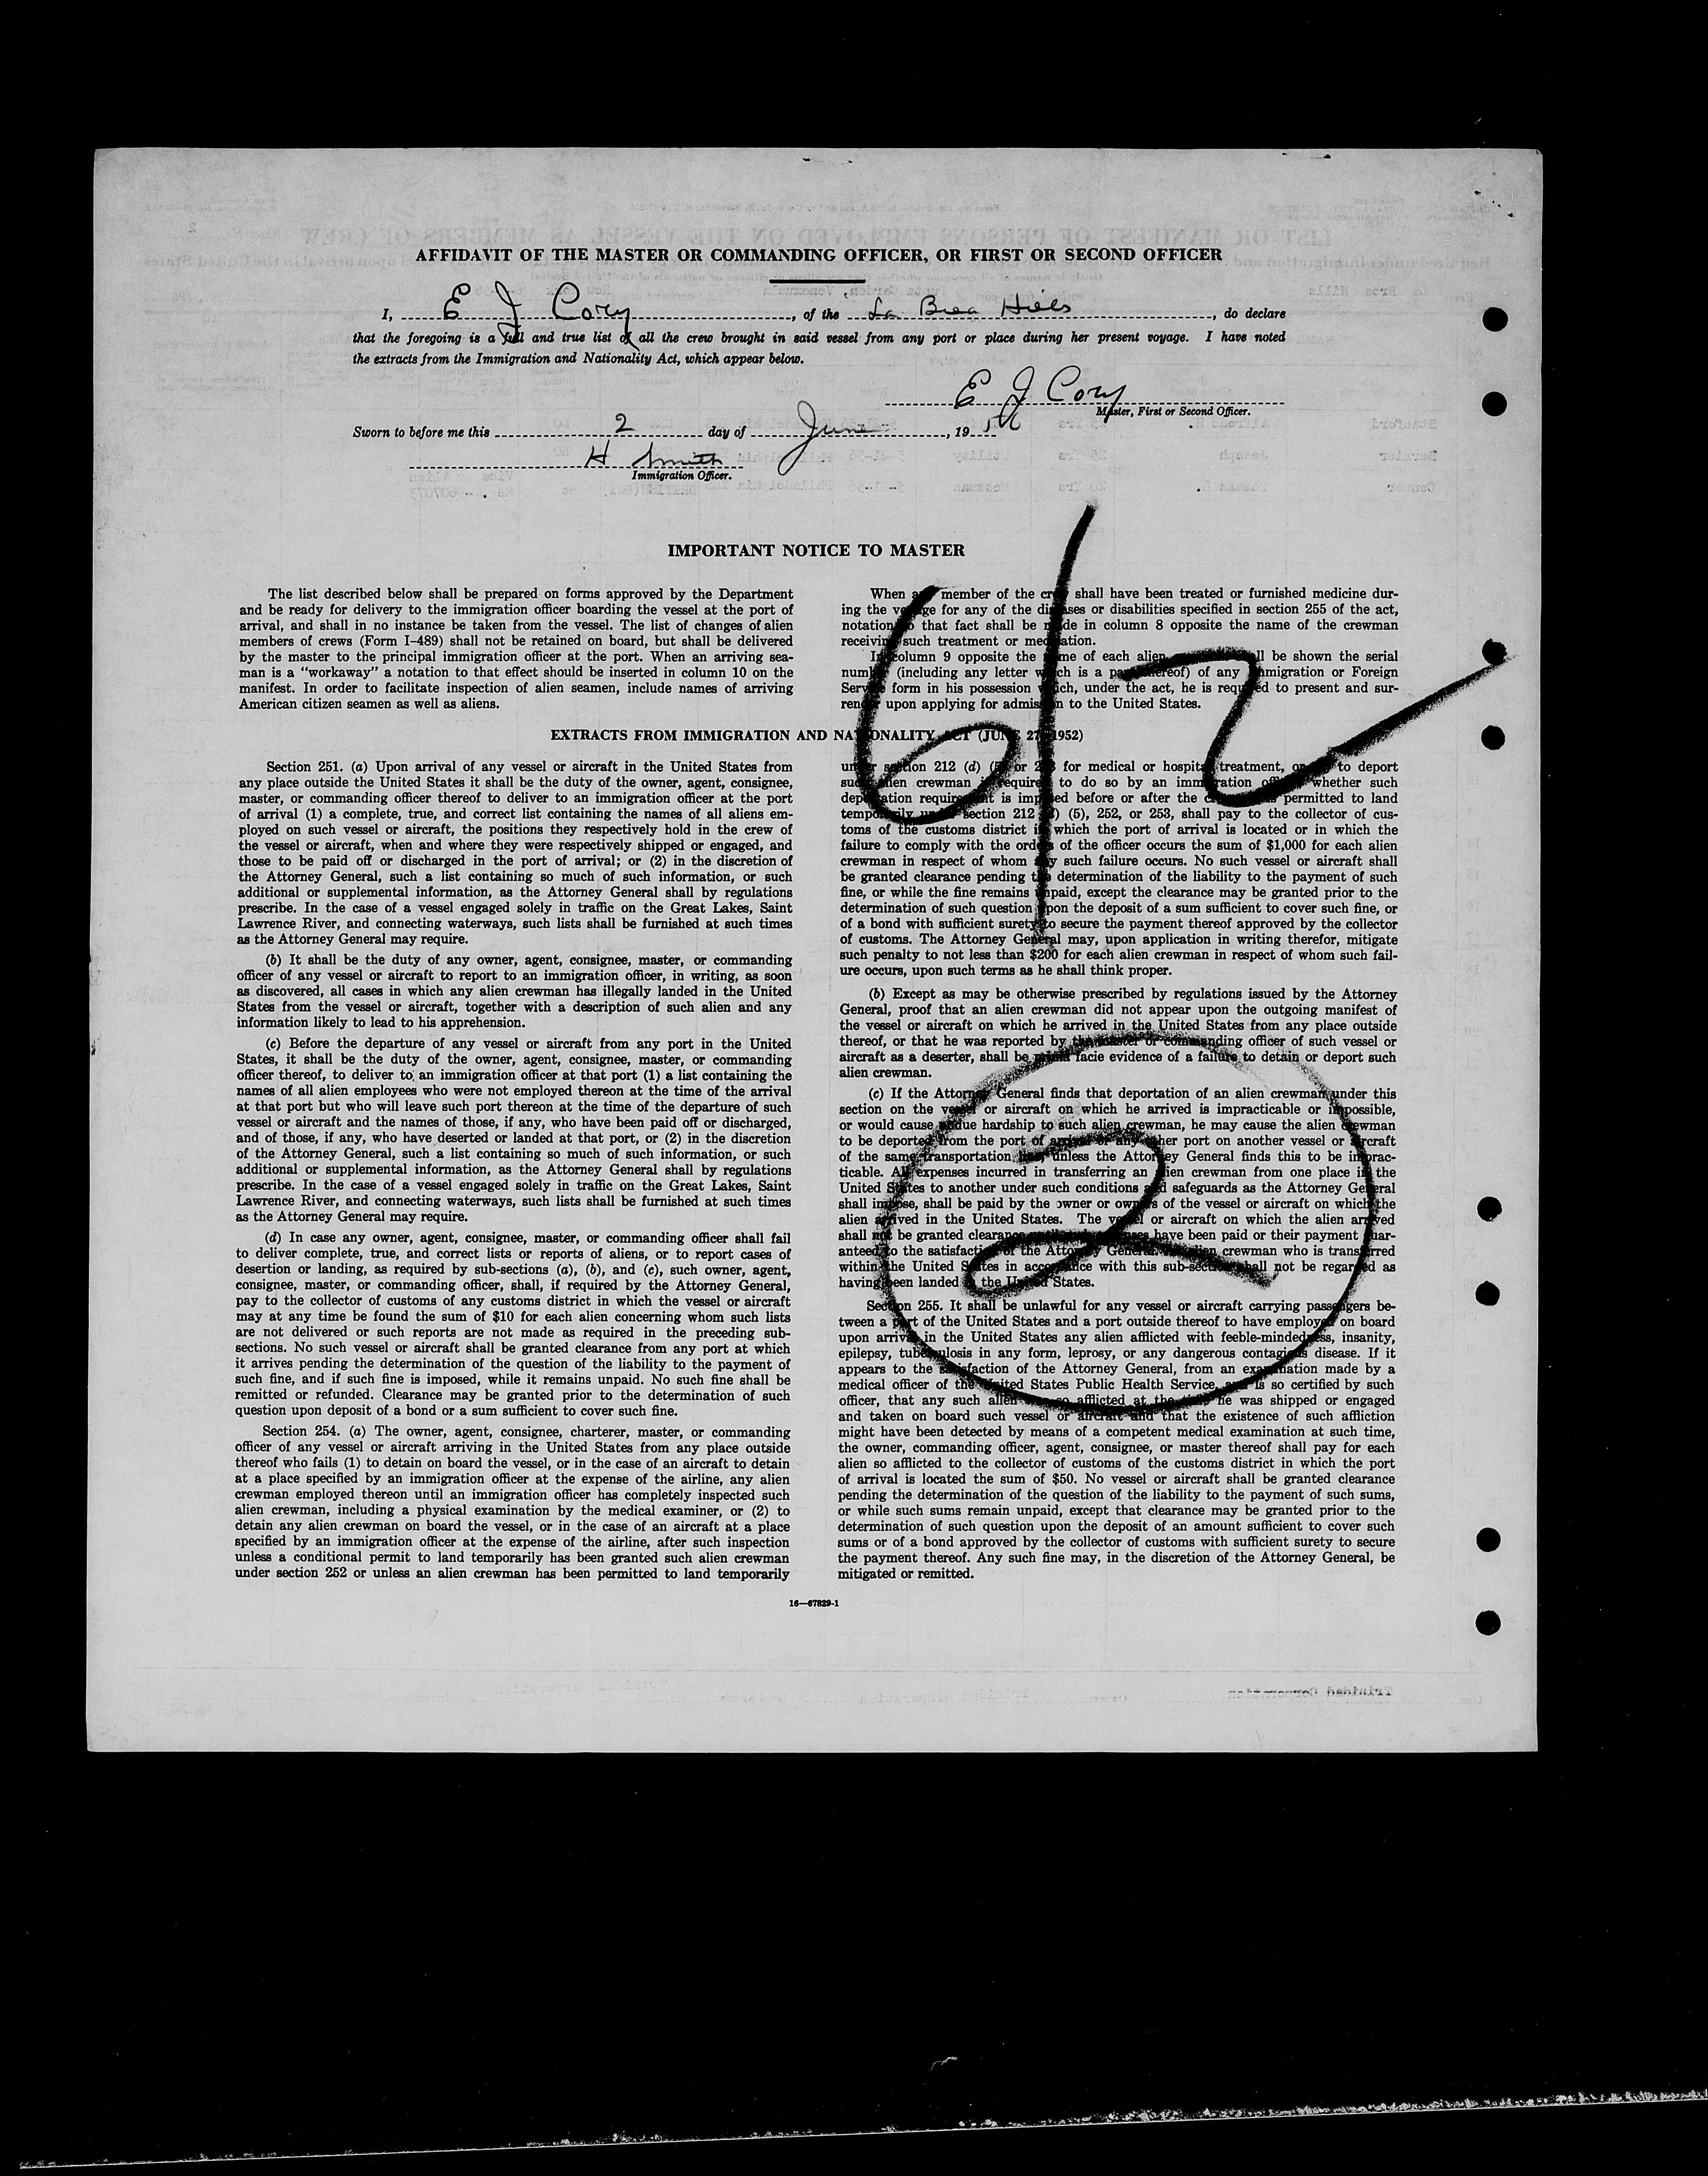 AFFIDAVIT OF THE MASTER OR COMMANDING OFFICER, OR FIRST OR SECOND OFFICER
I, E J Cory, of the La Brea Hills, do declare
that the foregoing is a full and true list of all the crew brought in said vessel from any port or place during her present voyage. I have noted
the extracts from the Immigration and Nationality Act, which appear below.
E J Cory
Master, First or Second Officer.
Sworn to before me this 2 day of June, 1956
H Smith
Immigration Officer.
IMPORTANT NOTICE TO MASTER
The list described below shall be prepared on forms approved by the Department
and be ready for delivery to the immigration officer boarding the vessel at the port of
arrival, and shall in no instance be taken from the vessel. The list of changes of alien
members of crews (Form I-489) shall not be retained on board, but shall be delivered
by the master to the principal immigration officer at the port. When an arriving sea-
man is a "workaway" a notation to that effect should be inserted in column 10 on the
manifest. In order to facilitate inspection of alien seamen, include names of arriving
American citizen seamen as well as aliens.
When a member of the crew shall have been treated or furnished medicine dur-
ing the voyage for any of the diseases or disabilities specified in section 255 of the act,
notation to that fact shall be made in column 8 opposite the name of the crewman
receiving such treatment or medication.
In column 9 opposite the name of each alien shall be shown the serial
number (including any letter which is a part thereof) of any Immigration or Foreign
Service form in his possession which, under the act, he is required to present and sur-
render upon applying for admission to the United States.
6/2
EXTRACTS FROM IMMIGRATION AND NATIONALITY ACT (JUNE 27, 1952)
Section 251. (a) Upon arrival of any vessel or aircraft in the United States from
any place outside the United States it shall be the duty of the owner, agent, consignee,
master, or commanding officer thereof to deliver to an immigration officer at the port
of arrival (1) a complete, true, and correct list containing the names of all aliens em-
ployed on such vessel or aircraft, the positions they respectively hold in the crew of
the vessel or aircraft, when and where they were respectively shipped or engaged, and
those to be paid off or discharged in the port of arrival; or (2) in the discretion of
the Attorney General, such a list containing so much of such information, or such
additional or supplemental information, as the Attorney General shall by regulations
prescribe. In the case of a vessel engaged solely in traffic on the Great Lakes, Saint
Lawrence River, and connecting waterways, such lists shall be furnished at such times
as the Attorney General may require.
(b) It shall be the duty of any owner, agent, consignee, master, or commanding
officer of any vessel or aircraft to report to an immigration officer, in writing, as soon
as discovered, all cases in which any alien crewman has illegally landed in the United
States from the vessel or aircraft, together with a description of such alien and any
information likely to lead to his apprehension.
(c) Before the departure of any vessel or aircraft from any port in the United
States, it shall be the duty of the owner, agent, consignee, master, or commanding
officer thereof, to deliver to an immigration officer at that port (1) a list containing the
names of all alien employees who were not employed thereon at the time of the arrival
at that port but who will leave such port thereon at the time of the departure of such
vessel or aircraft and the names of those, if any, who have been paid off or discharged,
and of those, if any, who have deserted or landed at that port, or (2) in the discretion
of the Attorney General, such a list containing so much of such information, or such
additional or supplemental information, as the Attorney General shall by regulations
prescribe. In the case of a vessel engaged solely in traffic on the Great Lakes, Saint
Lawrence River, and connecting waterways, such lists shall be furnished at such times
as the Attorney General may require.
(d) In case any owner, agent, consignee, master, or commanding officer shall fail
to deliver complete, true, and correct lists or reports of aliens, or to report cases of
desertion or landing, as required by sub-sections (a), (b), and (c), such owner, agent,
consignee, master, or commanding officer, shall, if required by the Attorney General,
pay to the collector of customs of any customs district in which the vessel or aircraft
may at any time be found the sum of $10 for each alien concerning whom such lists
are not delivered or such reports are not made as required in the preceding sub-
sections. No such vessel or aircraft shall be granted clearance from any port at which
it arrives pending the determination of the question of the liability to the payment of
such fine, and if such fine is imposed, while it remains unpaid. No such fine shall be
remitted or refunded. Clearance may be granted prior to the determination of such
question upon deposit of a bond or a sum sufficient to cover such fine.
Section 254. (a) The owner, agent, consignee, charterer, master, or commanding
officer of any vessel or aircraft arriving in the United States from any place outside
thereof who fails (1) to detain on board the vessel, or in the case of an aircraft to detain
at a place specified by an immigration officer at the expense of the airline, any alien
crewman employed thereon until an immigration officer has completely inspected such
alien crewman, including a physical examination by the medical examiner, or (2) to
detain any alien crewman on board the vessel, or in the case of an aircraft at a place
specified by an immigration officer at the expense of the airline, after such inspection
unless a conditional permit to land temporarily has been granted such alien crewman
under section 252 or unless an alien crewman has been permitted to land temporarily
under section 212 (d) (5) or 253 for medical or hospital treatment, or (3) to deport
such alien crewman if required to do so by an immigration officer, whether such
deportation requirement is imposed before or after the crewman is permitted to land
temporarily under section 212 (d) (5), 252, or 253, shall pay to the collector of cus-
toms of the customs district in which the port of arrival is located or in which the
failure to comply with the orders of the officer occurs the sum of $1,000 for each alien
crewman in respect of whom any such failure occurs. No such vessel or aircraft shall
be granted clearance pending the determination of the liability to the payment of such
fine, or while the fine remains unpaid, except the clearance may be granted prior to the
determination of such question upon the deposit of a sum sufficient to cover such fine, or
of a bond with sufficient surety to secure the payment thereof approved by the collector
of customs. The Attorney General may, upon application in writing therefor, mitigate
such penalty to not less than $200 for each alien crewman in respect of whom such fail-
ure occurs, upon such terms as he shall think proper.
(b) Except as may be otherwise prescribed by regulations issued by the Attorney
General, proof that an alien crewman did not appear upon the outgoing manifest of
the vessel or aircraft on which he arrived in the United States from any place outside
thereof, or that he was reported by the master or commanding officer of such vessel or
aircraft as a deserter, shall be prima facie evidence of a failure to detain or deport such
alien crewman.
(c) If the Attorney General finds that deportation of an alien crewman under this
section on the vessel or aircraft on which he arrived is impracticable or impossible,
or would cause undue hardship to such alien crewman, he may cause the alien crewman
to be deported from the port of arrival or any other port on another vessel or aircraft
of the same transportation line, unless the Attorney General finds this to be imprac-
ticable. All expenses incurred in transferring an alien crewman from one place in the
United States to another under such conditions and safeguards as the Attorney General
shall impose, shall be paid by the owner or owners of the vessel or aircraft on which the
alien arrived in the United States. The vessel or aircraft on which the alien arrived
shall not be granted clearance until such expenses have been paid or their payment guar-
anteed to the satisfaction of the Attorney General. An alien crewman who is transferred
within the United States in accordance with this sub-section shall not be regarded as
having been landed in the United States.
2
Section 255. It shall be unlawful for any vessel or aircraft carrying passengers be-
tween a port of the United States and a port outside thereof to have employed on board
upon arrival in the United States any alien afflicted with feeble-mindedness, insanity,
epilepsy, tuberculosis in any form, leprosy, or any dangerous contagious disease. If it
appears to the satisfaction of the Attorney General, from an examination made by a
medical officer of the United States Public Health Service, and is so certified by such
officer, that any such alien was so afflicted at the time he was shipped or engaged
and taken on board such vessel or aircraft and that the existence of such affliction
might have been detected by means of a competent medical examination at such time,
the owner, commanding officer, agent, consignee, or master thereof shall pay for each
alien so afflicted to the collector of customs of the customs district in which the port
of arrival is located the sum of $50. No vessel or aircraft shall be granted clearance
pending the determination of the question of the liability to the payment of such sums,
or while such sums remain unpaid, except that clearance may be granted prior to the
determination of such question upon the deposit of an amount sufficient to cover such
sums or of a bond approved by the collector of customs with sufficient surety to secure
the payment thereof. Any such fine may, in the discretion of the Attorney General, be
mitigated or remitted.
16—67829-1